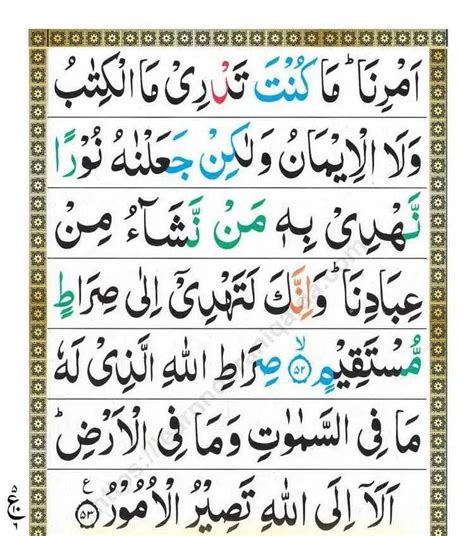 اَمۡرِنَا‌ ؕ مَا كُنۡتَ تَدۡرِىۡ مَا الۡكِتٰبُ
وَلَا الۡاِيۡمَانُ وَلٰـكِنۡ جَعَلۡنٰهُ نُوۡرًا
نَّهۡدِىۡ بِهٖ مَنۡ نَّشَآءُ مِنۡ
عِبَادِنَا‌ ؕ وَاِنَّكَ لَتَهۡدِىۡۤ اِلٰى صِرَاطٍ
مُّسۡتَقِيۡمٍ ۙ‏ ﴿۵۲﴾ صِرَاطِ اللّٰهِ الَّذِىۡ لَهٗ
مَا فِى السَّمٰوٰتِ وَمَا فِى الۡاَرۡضِ‌ؕ
اَلَاۤ اِلَى اللّٰهِ تَصِيۡرُ الۡاُمُوۡرُ ﴿۵۳﴾ ع